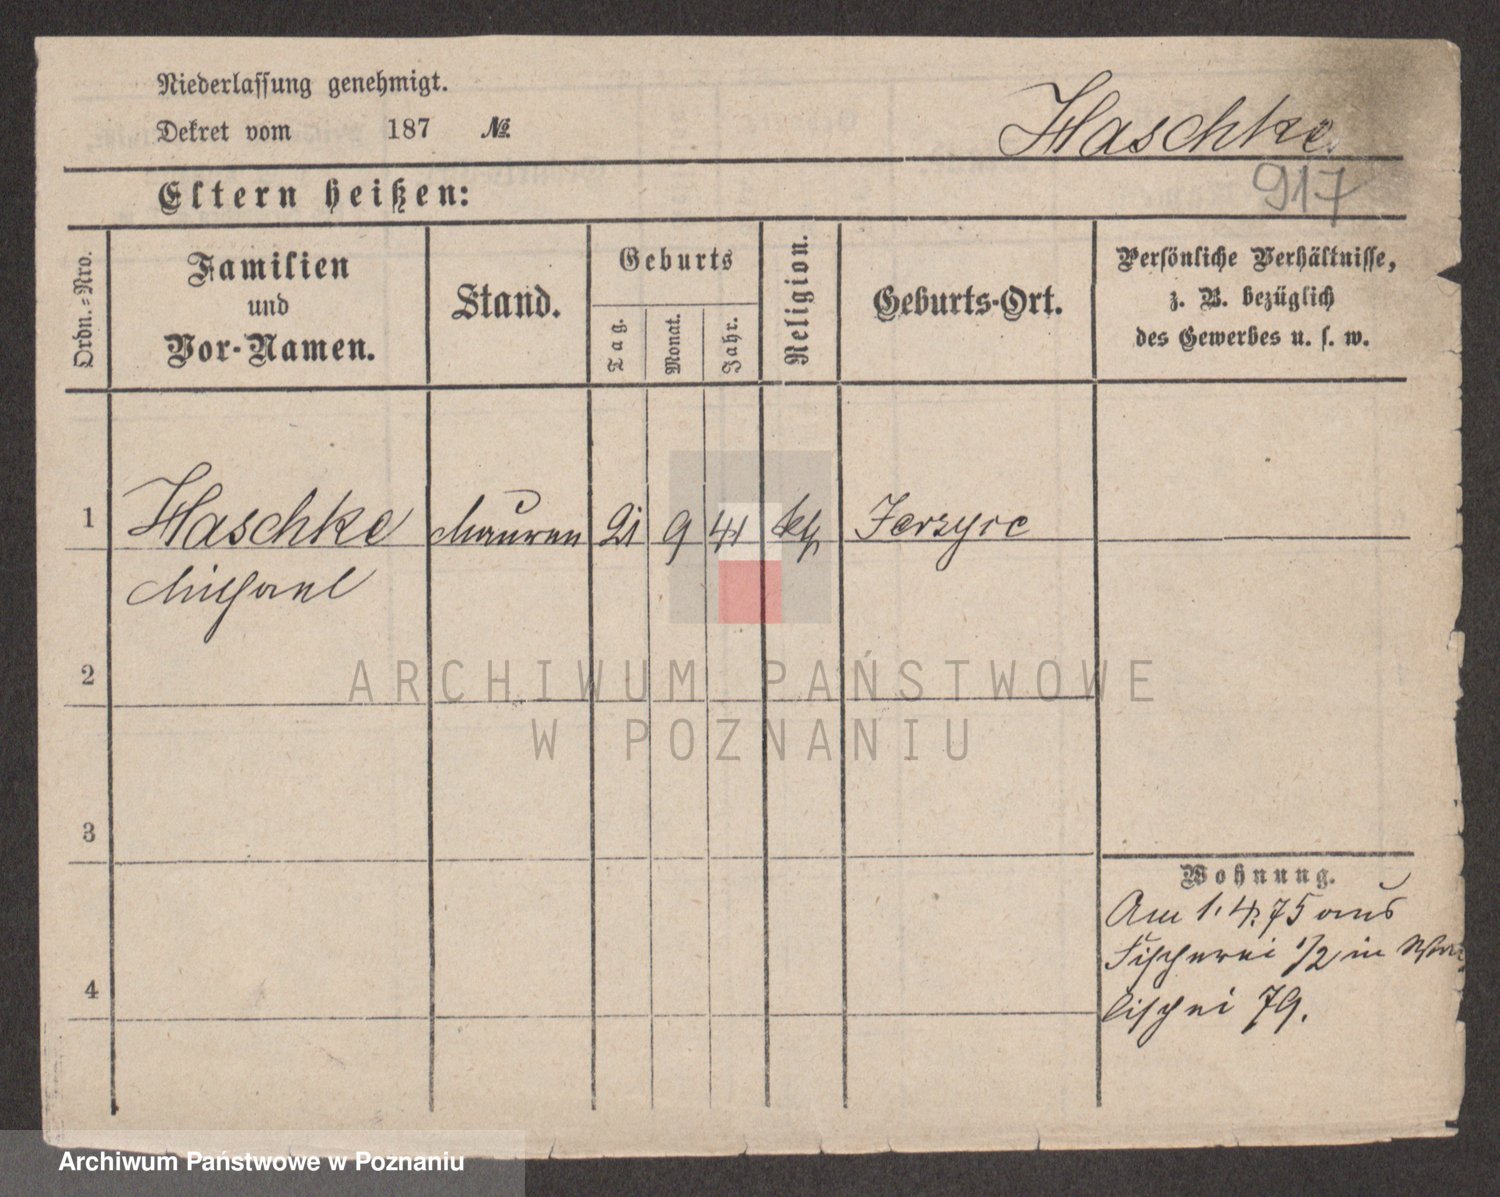 Niederlassung genehmigt.
Dekret vom 187 №
Haschke
917
Eltern heißen:
Ordn.-Nro.
Familien
und
Vor-Namen.
Stand.
Geburts
Tag.
Monat.
Jahr.
Religion.
Geburts-Ort.
Persönliche Verhältnisse,
z. B. bezüglich
des Gewerbes u. s. w.
1 Haschke Maurer 21 9 41 kth Jerzyce
Michael
2
ARCHIWUM PAŃSTWOWE
W POZNANIU
3
Wohnung.
Am 1.4.75 aus
Fischerei 1/2 in Wal
lischei 79.
4
Archiwum Państwowe w Poznaniu